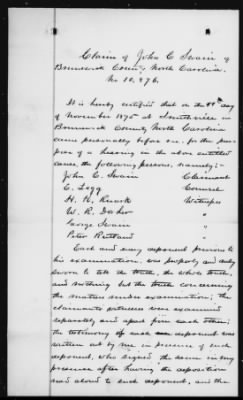 Claim of John C Swain of
Brunswick County North Carolina.
No 10,276.
It is hereby certified that on the 9th day
of November 1875 at Smithville in
Brunswick County North Carolina
came personally before me, for the pur-
pose of a hearing in the above entitled
cause, the following persons, namely:-
John C. Swain Claimant
C. Legg Counsel
H. K. Witnesses
W. R. "
George Swain "
Peter "
Each and every deponent previous to
his examination, was properly and duly
sworn to tell the truth, the whole truth,
and nothing but the truth concerning
the matter under examination; the
claimants witnesses were examined
separately and apart from each other;
the testimony of each deponent was
written out by me in presence of such
deponent, who signed the same in my
presence after having the deposition
read aloud to such deponent, and the